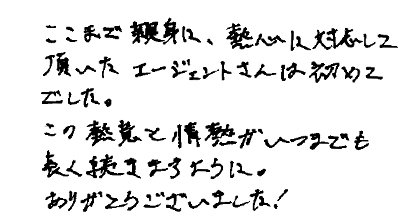 ここまで親身に、熱心に対応して
頂いたエージェントさんは初めて
でした。
この熱意と情熱がいつまでも
長く続きますように。
ありがとうございました!